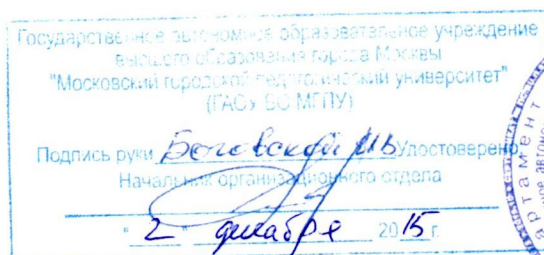 Государственное автономное образовательное учреждение
высшего образования города Москвы
"Московский городской педагогический университет"
(ГАОУ ВО МГПУ)
Подпись руки Удостоверено
Начальник организационного отдела
"2" декабря 2015 г.